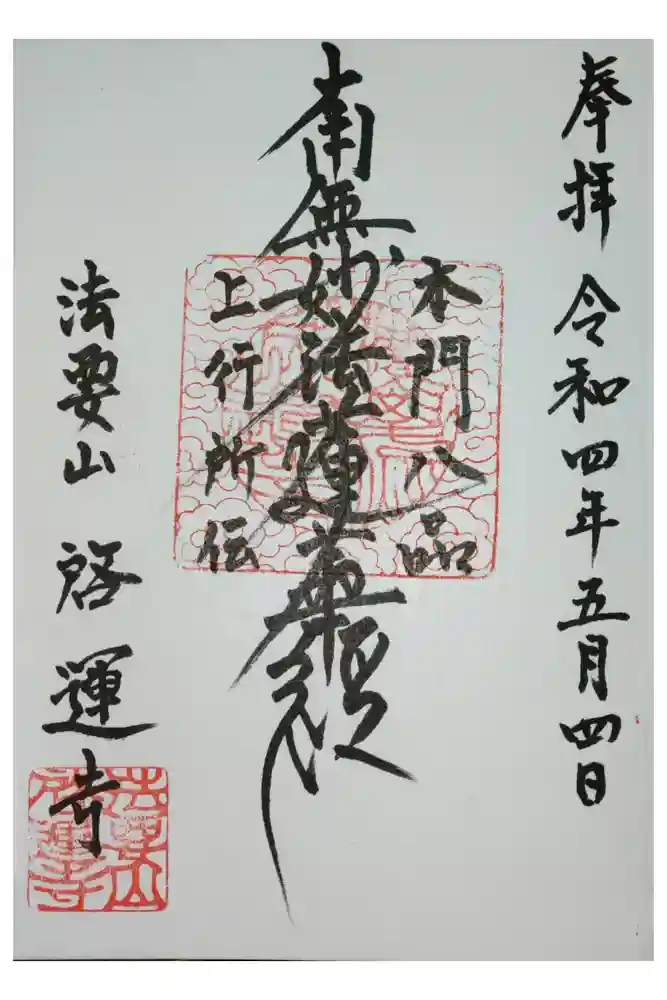 奉拝 令和四年五月四日
本門八品
南無妙法蓮華経
上行所伝
法要山 啓運寺
法要山
啓運寺